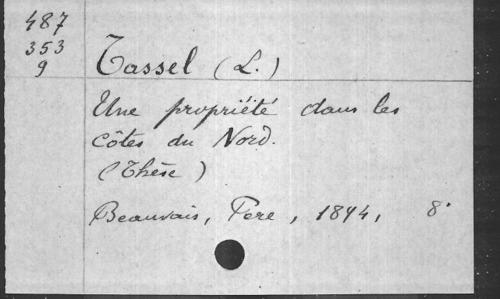 487
353
9
Tassel (L.)
Une propriété dans les
côtes du Nord.
(Thèse)
Beauvais, Pere, 1894, 8°